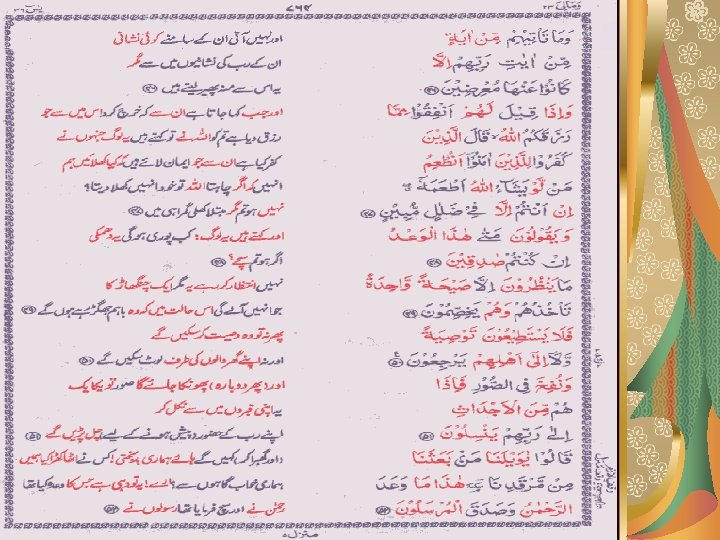 وَمَالِیَ ۲۳
یٰسٓ ۳۶
وَمَا تَاْتِیْهِمْ مِّنْ اٰیَةٍ
مِّنْ اٰیٰتِ رَبِّهِمْ اِلَّا
كَانُوْا عَنْهَا مُعْرِضِیْنَ ﴿۴۶﴾
وَاِذَا قِیْلَ لَهُمْ اَنْفِقُوْا مِمَّا
رَزَقَكُمُ اللّٰهُ ۙ قَالَ الَّذِیْنَ
كَفَرُوْا لِلَّذِیْنَ اٰمَنُوْۤا اَنُطْعِمُ
مَنْ لَّوْ یَشَآءُ اللّٰهُ اَطْعَمَهٗۤ ۖۗ
اِنْ اَنْتُمْ اِلَّا فِیْ ضَلٰلٍ مُّبِیْنٍ ﴿۴۷﴾
وَیَقُوْلُوْنَ مَتٰی هٰذَا الْوَعْدُ
اِنْ كُنْتُمْ صٰدِقِیْنَ ﴿۴۸﴾
مَا یَنْظُرُوْنَ اِلَّا صَیْحَةً وَّاحِدَةً
تَاْخُذُهُمْ وَهُمْ یَخِصِّمُوْنَ ﴿۴۹﴾
فَلَا یَسْتَطِیْعُوْنَ تَوْصِیَةً
وَّلَاۤ اِلٰۤی اَهْلِهِمْ یَرْجِعُوْنَ ﴿۵۰﴾
وَنُفِخَ فِی الصُّوْرِ فَاِذَا
هُمْ مِّنَ الْاَجْدَاثِ
اِلٰی رَبِّهِمْ یَنْسِلُوْنَ ﴿۵۱﴾
قَالُوْا یٰوَیْلَنَا مَنْۢ بَعَثَنَا
مِنْ مَّرْقَدِنَا ۘ هٰذَا مَا وَعَدَ
الرَّحْمٰنُ وَصَدَقَ الْمُرْسَلُوْنَ ﴿۵۲﴾
اور نہیں آتی ان کے سامنے کوئی نشانی
ان کے رب کی نشانیوں میں سے مگر
یہ اس سے منہ پھیر لیتے ہیں ﴿۴۶﴾
اور جب کہا جاتا ہے ان سے کہ خرچ کرو اس میں سے جو
رزق دیا ہے تم کو اللہ نے تو کہتے ہیں یہ لوگ جنہوں نے
کفر کیا ہے ان سے جو ایمان لائے ہیں کہ کیا کھلائیں ہم
انہیں کہ اگر چاہتا اللہ تو خود انہیں کھلا دیتا؟
نہیں ہو تم مگر مبتلا کھلی گمراہی میں ﴿۴۷﴾
اور کہتے ہیں یہ لوگ: کب پوری ہوگی یہ دھمکی
اگر ہو تم سچے؟ ﴿۴۸﴾
نہیں انتظار کر رہے یہ مگر ایک چنگھاڑ کا
جو انہیں آلے گی اس حالت میں کہ وہ باہم جھگڑ رہے ہوں گے ﴿۴۹﴾
پھر نہ تو وہ وصیت کر سکیں گے
اور نہ اپنے گھر والوں کی طرف لوٹ سکیں گے ﴿۵۰﴾
اور (پھر دوبارہ) پھونکا جائے گا صور تو یکایک
یہ اپنی قبروں میں سے نکل کر
اپنے رب کے حضور پیش ہونے کے لیے چل پڑیں گے ﴿۵۱﴾
(اور گھبرا کر) کہیں گے ہائے ہماری بدبختی! کس نے اٹھا کھڑا کیا ہمیں
ہماری خواب گاہوں سے؟ (ارے!) یہ تو وہی ہے جس کا وعدہ کیا تھا
رحمٰن نے اور سچ فرمایا تھا رسولوں نے ﴿۵۲﴾
منزل ۵